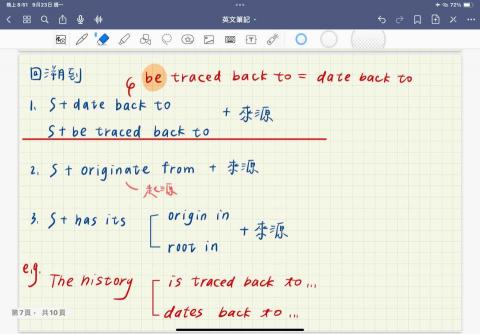 晚上8:51 9月23日 週一
72%
英文筆記
回溯到
be traced back to = date back to
1. S + date back to
S + be traced back to + 來源
2. S + originate from + 來源
起源
3. S + has its origin in
root in + 來源
e.g. The history is traced back to...
dates back to...
第7頁，共10頁